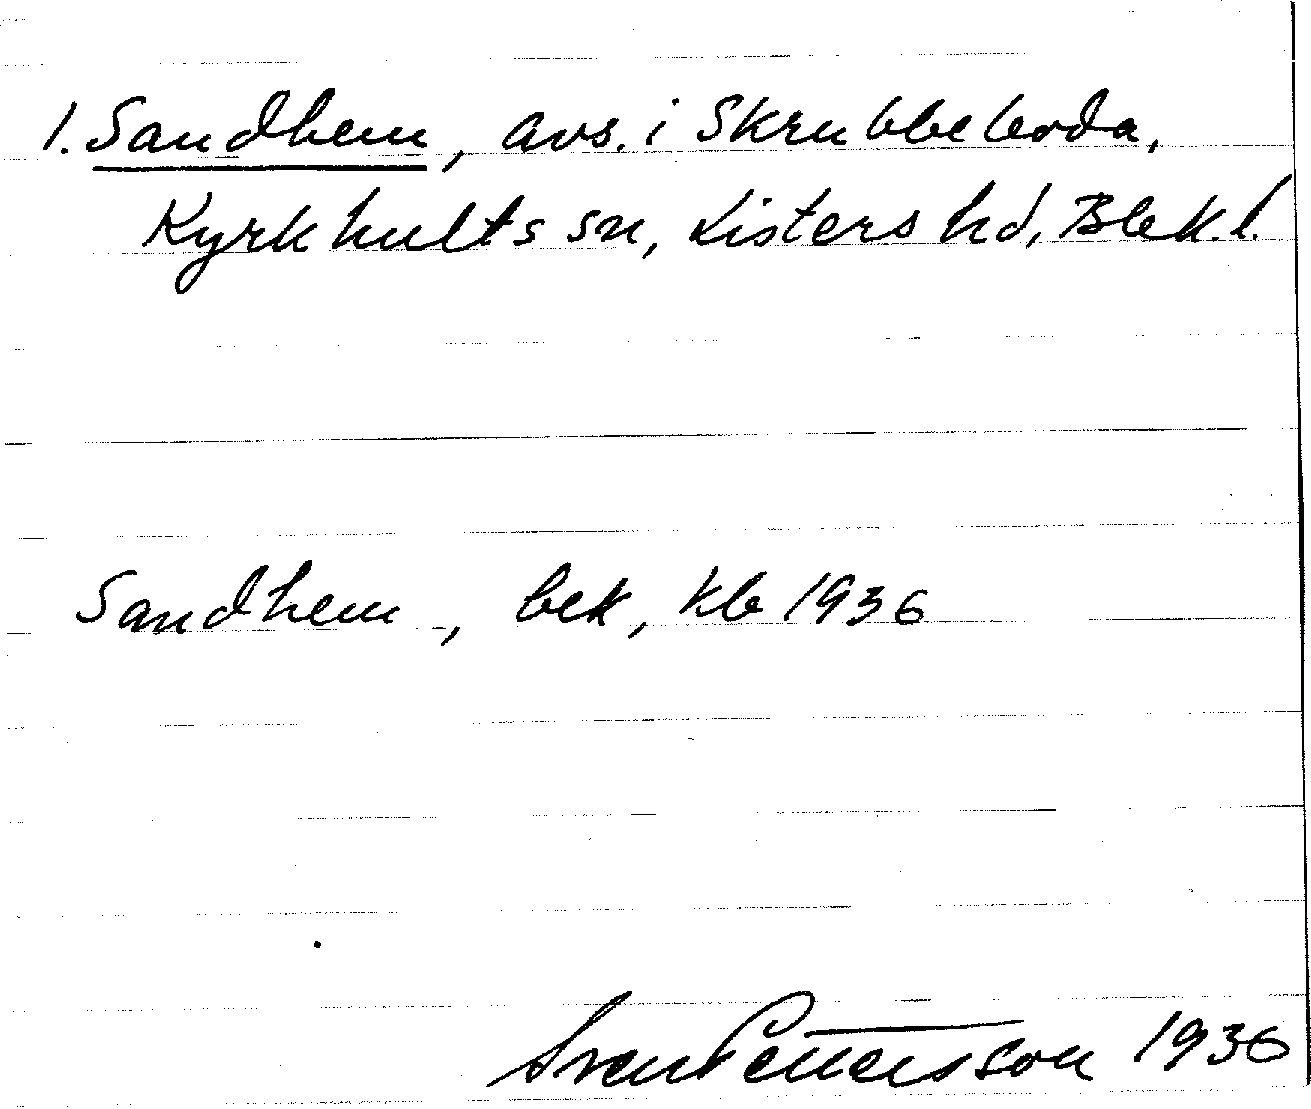 1. Sandhem, avs. i Skrubbeboda,
Kyrkhults sn, Listers hd, Blek. l.
Sandhem, bek, kb 1936
Sven Pettersson 1936